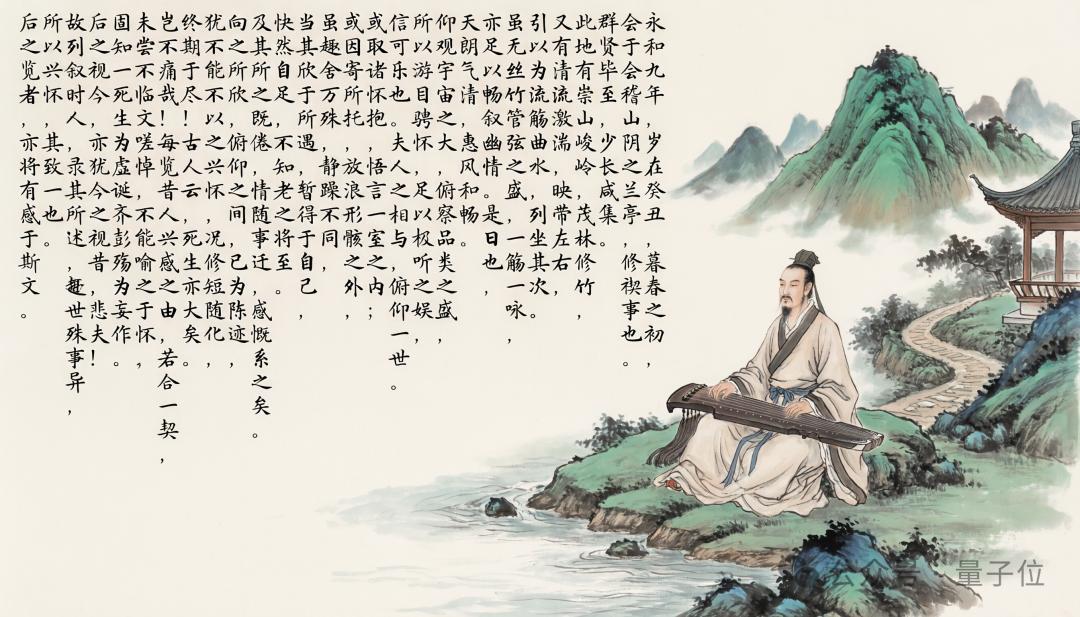 永和九年，岁在癸丑，暮春之初，
会于会稽山，阴之兰亭，修禊事也。
群贤毕至，少长咸集。
此地有崇山，峻岭，茂林修竹，
又有清流激湍，映带左右，
引以为流筋曲水，列坐其次，
虽无丝竹管弦之盛，一筋一咏，
亦足以畅叙幽情。是日也，
天朗气清，惠风和畅。
仰观宇宙之大，俯察品类之盛，
所以游目骋怀，足以极听之娱，
信可乐也。夫人之相与，俯仰一世。
或取诸怀抱。悟言一室之内；
或因寄所托，放浪形骸之外，
虽趣舍万殊，静躁不同，
当其欣于所遇，暂得于自己，
快然自足，不知老之将至。
及其所之既，倦情随事迁，感慨系之矣。
向之所欣，俯仰之间，已为陈迹，
犹不能不以，之兴怀，况修短随化，
终期于尽！古人云，死生亦大矣。
岂不痛哉！每览昔人兴感之由，若合一契，
未尝不临文嗟悼，不能喻之于怀，
固知一死生为虚诞，齐彭殇为妄作。
后之视今，亦犹今之视昔，悲夫！
故列叙时人，录其所述，趣世殊事异，
所以兴怀，其致一也。
后之览者，亦将有感于斯文。
公众号 · 量子位